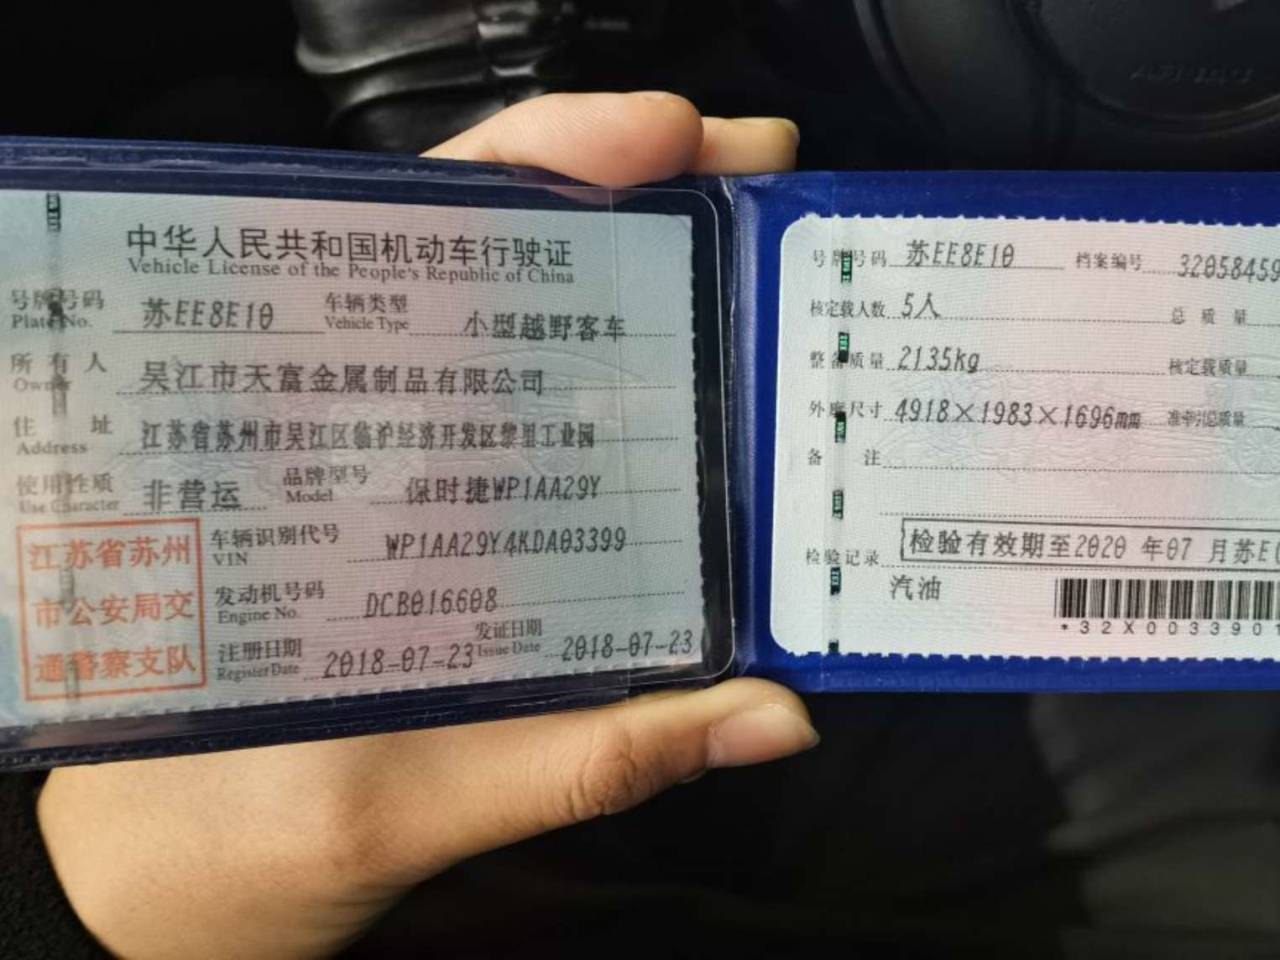 中华人民共和国机动车行驶证
Vehicle License of the People's Republic of China
号牌号码 苏EE8E10 车辆类型 小型越野客车
Plate No. Vehicle Type
所有人 吴江市天富金属制品有限公司
Owner
住址 江苏省苏州市吴江区临沪经济开发区黎里工业园
Address
使用性质 非营运 品牌型号 保时捷WP1AA29Y
Use Character Model
江苏省苏州
市公安局交
通警察支队
车辆识别代号 WP1AA29Y4KDA03399
VIN
发动机号码 DCB016608
Engine No.
注册日期 2018-07-23 发证日期 2018-07-23
Register Date Issue Date
号牌号码 苏EE8E10 档案编号 32058459
核定载人数 5人 总质量
整备质量 2135kg 核定载质量
外廓尺寸 4918×1983×1696mm 准牵引总质量
备注
检验记录 检验有效期至2020年07月苏E(
汽油
*32X0033901